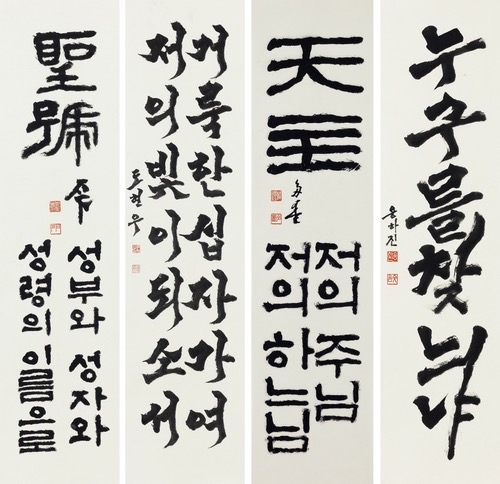 聖號
성부와 성자와
성령의 이름으로
거룩한 십자가여
저의 빛이 되소서
도현우
天主
저의 주님
저의 하느님
누구를 찾느냐